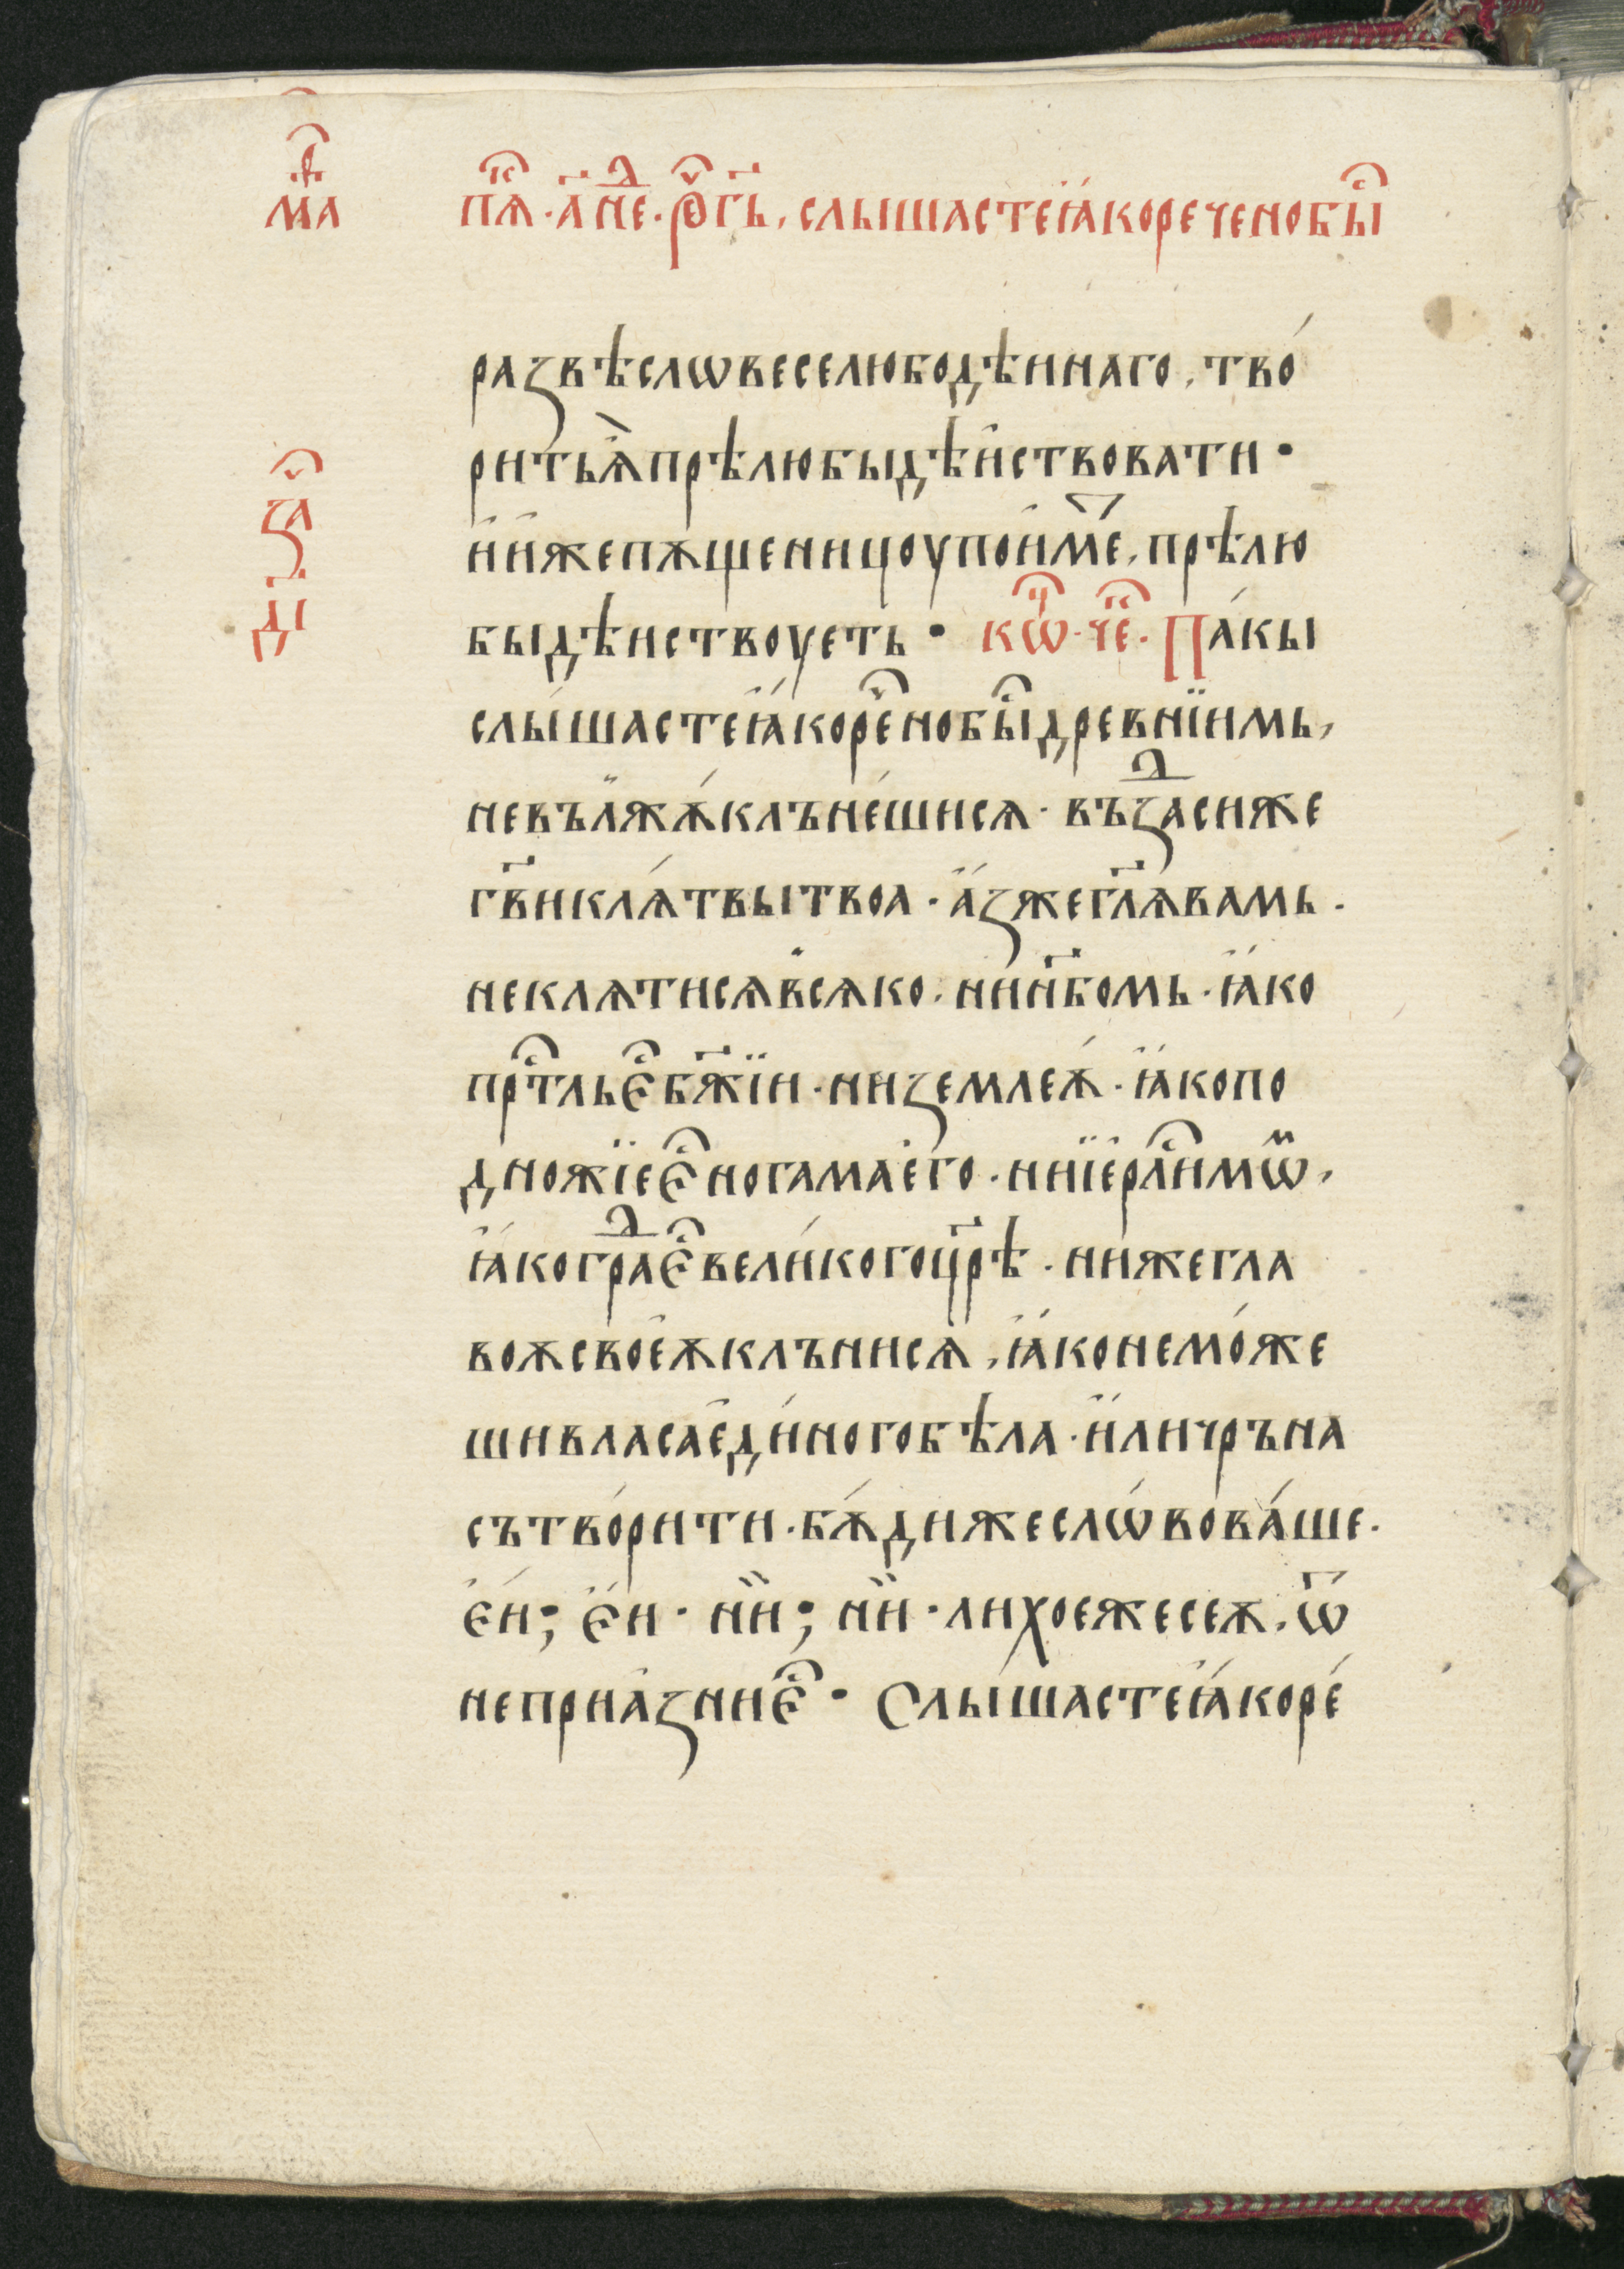 мⷭ҇а
пѧⷦ҇ · а҃ неⷣ · рⷱ҇е гь҃ · слышастеꙗкореченобыⷭ҇
развѣсловвеселюбодѣннаго, тво́
ритьѧ̀прѣлюбыдѣи҆ствовати ·
и҆и҆жепѫщеницоупои҆меⷮ, прѣлю
быдѣиствоуеть · кѡⷰ҇ · чеⷦ҇ · Па́кы
слы́шастеꙗ҆́кореⷱ҇нобыⷭ҇древнїимь,
невълъжѫ́клъне́шисѧ · възⷣасиже
гв҃иклѧ́твытвоа · а҆́зжегл҃ѧвамь ·
неклѧтисѧвсѧко · нин҃бомь · ꙗ҆́ко
прⷭ҇тльєⷭ҇бж҃їи · низемлеѫ́ · ꙗ҆́копо
дножїеєⷭ҇ногамаего · ниїерⷭ҇лимѡⷨ,
ꙗ҆́когрⷣаєⷭ҇вели́когоцр҃ѣ · нижегла
воѫсвоеѫклънисѧ, ꙗ҆́конемо́же
шивласаеди́ногобѣла · и҆́личръна
сътво́рити · бѫ́дижеслѡ́вова́ше ·
є҆́и; є҆́и · ни̏; ни̏ · лихоежесеѫ, ѿ
неприа́зниєⷭ҇ · Слы́шастеꙗ҆́коре́
заⷱ҇
д҃і